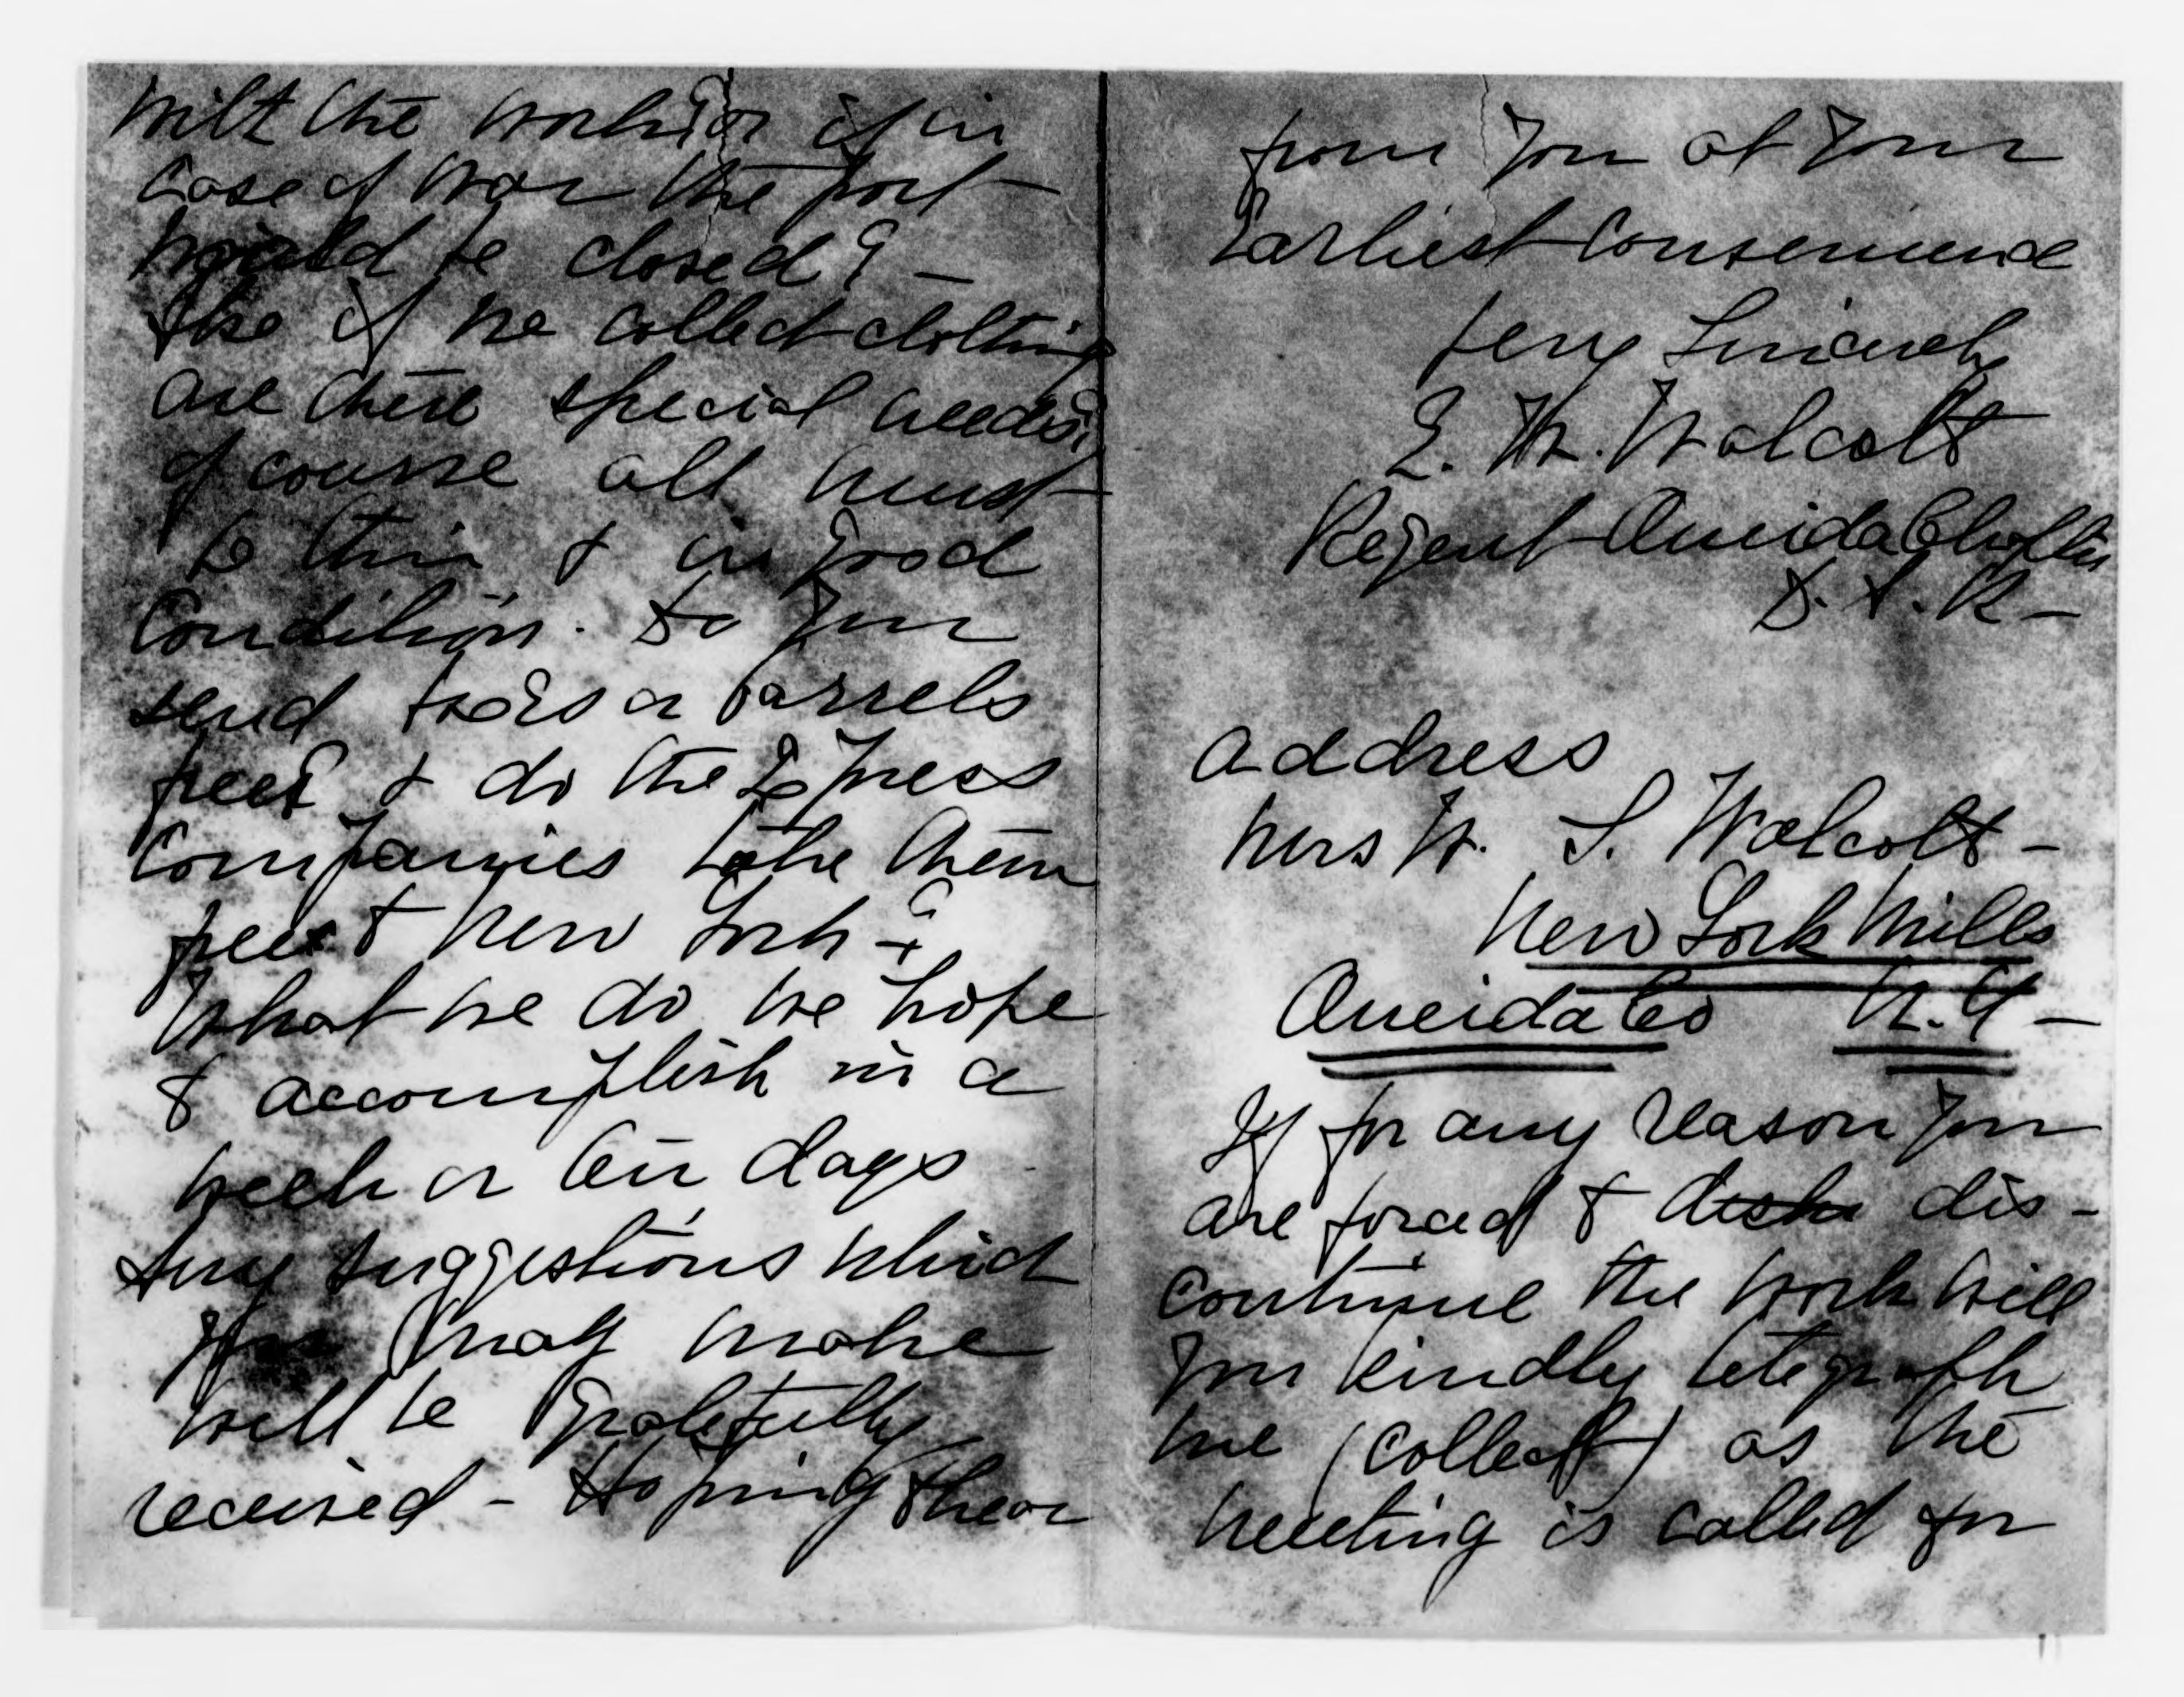 with the work or if in
case of war the port
would be closed? —
Also if we collect clothing
are there special needs?
of course all must
be thin & in good
condition. Do you
send boxes or barrels
free? & do the Express
Companies take them
free to New York?
What we do we hope
to accomplish in a
week or ten days
Any suggestions which
you may make
will be gratefully
received - Hoping to hear
from you at your
Earliest convenience
Very Sincerely
E. M. Walcott
Regent Oneida Chapter
D. A. R —
address
Mrs W. S. Walcott -
New York Mills
Oneida Co N.Y —
If for any reason you
are forced to dis-
continue the work will
you kindly telegraph
me (collect) as the
meeting is called for